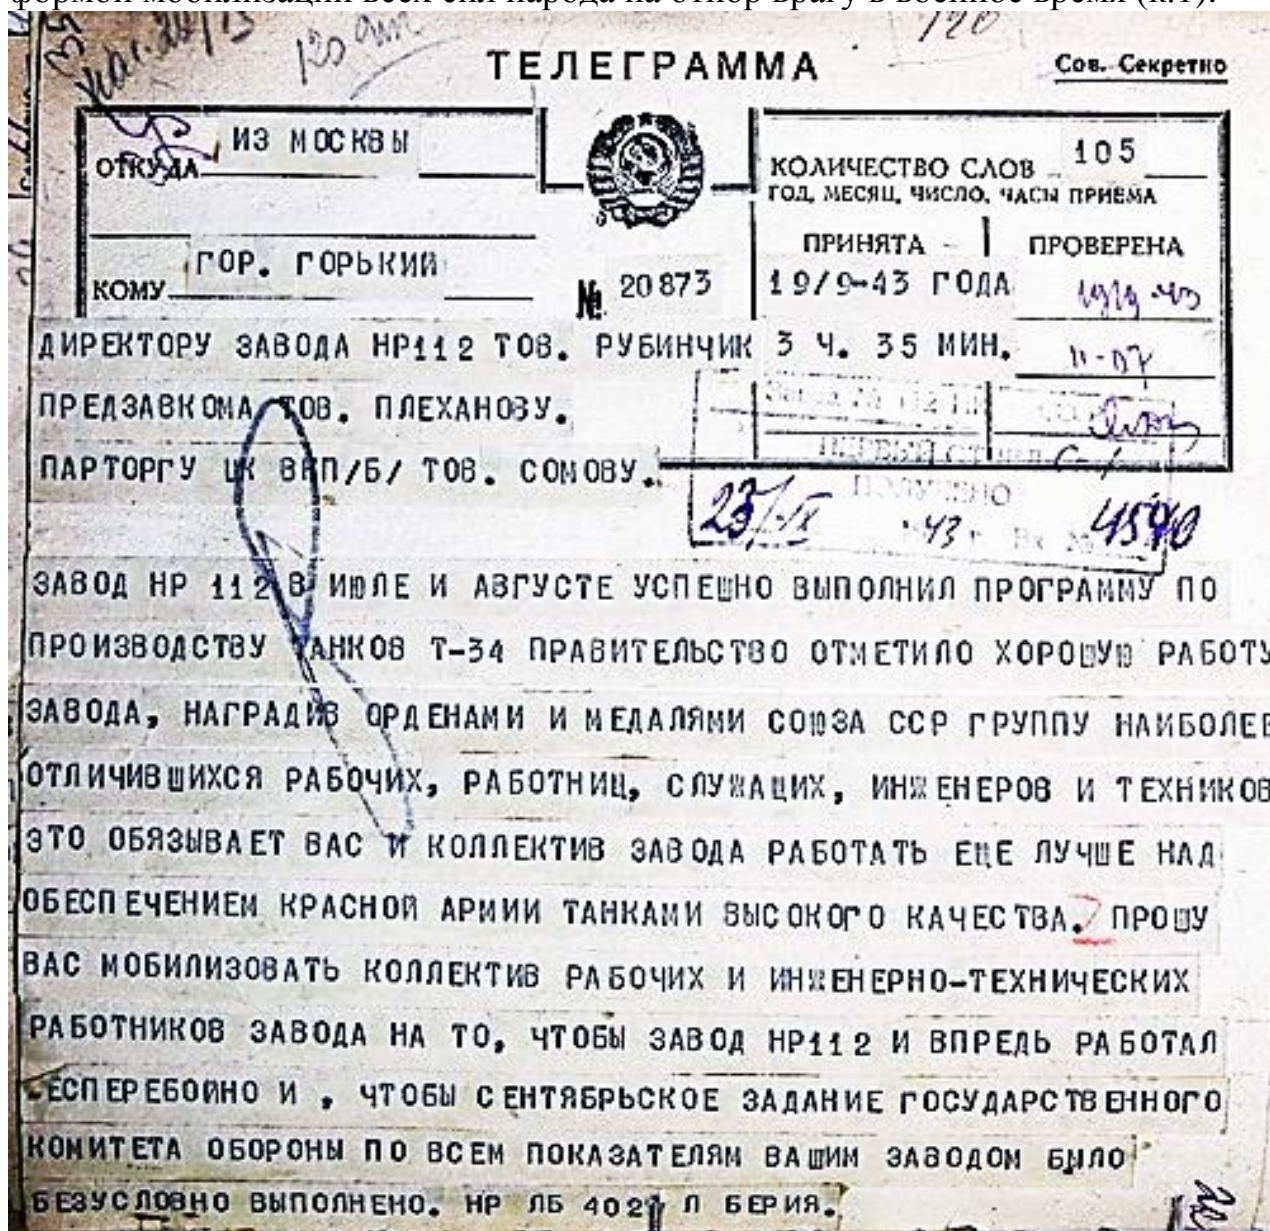 формой мобилизации всех сил народа на отпор врагу в военное время (к.1).
120
ТЕЛЕГРАММА
Сов. Секретно
ОТКУДА ИЗ МОСКВЫ
КОЛИЧЕСТВО СЛОВ 105
ГОД, МЕСЯЦ, ЧИСЛО, ЧАСЫ ПРИЕМА
ПРИНЯТА ПРОВЕРЕНА
КОМУ ГОР. ГОРЬКИЙ
№ 20873
19/9-43 ГОДА
19/9-43
ДИРЕКТОРУ ЗАВОДА НР112 ТОВ. РУБИНЧИК 3 Ч. 35 МИН.
11-07
ПРЕДЗАВКОМА ТОВ. ПЛЕХАНОВУ.
ПАРТОРГУ ЦК ВКП/Б/ ТОВ. СОМОВУ.
ПЕРВЫЙ ОТДЕЛ
ПОЛУЧЕНО
23/IX 43 г. Вх № 4540
ЗАВОД НР 112 В ИЮЛЕ И АВГУСТЕ УСПЕШНО ВЫПОЛНИЛ ПРОГРАММУ ПО
ПРОИЗВОДСТВУ ТАНКОВ Т-34 ПРАВИТЕЛЬСТВО ОТМЕТИЛО ХОРОШУЮ РАБОТУ
ЗАВОДА, НАГРАДИВ ОРДЕНАМИ И МЕДАЛЯМИ СОЮЗА ССР ГРУППУ НАИБОЛЕЕ
ОТЛИЧИВШИХСЯ РАБОЧИХ, РАБОТНИЦ, СЛУЖАЩИХ, ИНЖЕНЕРОВ И ТЕХНИКОВ
ЭТО ОБЯЗЫВАЕТ ВАС И КОЛЛЕКТИВ ЗАВОДА РАБОТАТЬ ЕЩЕ ЛУЧШЕ НАД
ОБЕСПЕЧЕНИЕМ КРАСНОЙ АРМИИ ТАНКАМИ ВЫСОКОГО КАЧЕСТВА. ПРОШУ
ВАС МОБИЛИЗОВАТЬ КОЛЛЕКТИВ РАБОЧИХ И ИНЖЕНЕРНО-ТЕХНИЧЕСКИХ
РАБОТНИКОВ ЗАВОДА НА ТО, ЧТОБЫ ЗАВОД НР112 И ВПРЕДЬ РАБОТАЛ
БЕСПЕРЕБОЙНО И , ЧТОБЫ СЕНТЯБРЬСКОЕ ЗАДАНИЕ ГОСУДАРСТВЕННОГО
КОМИТЕТА ОБОРОНЫ ПО ВСЕМ ПОКАЗАТЕЛЯМ ВАШИМ ЗАВОДОМ БЫЛО
БЕЗУСЛОВНО ВЫПОЛНЕНО. НР ЛБ Л БЕРИЯ.